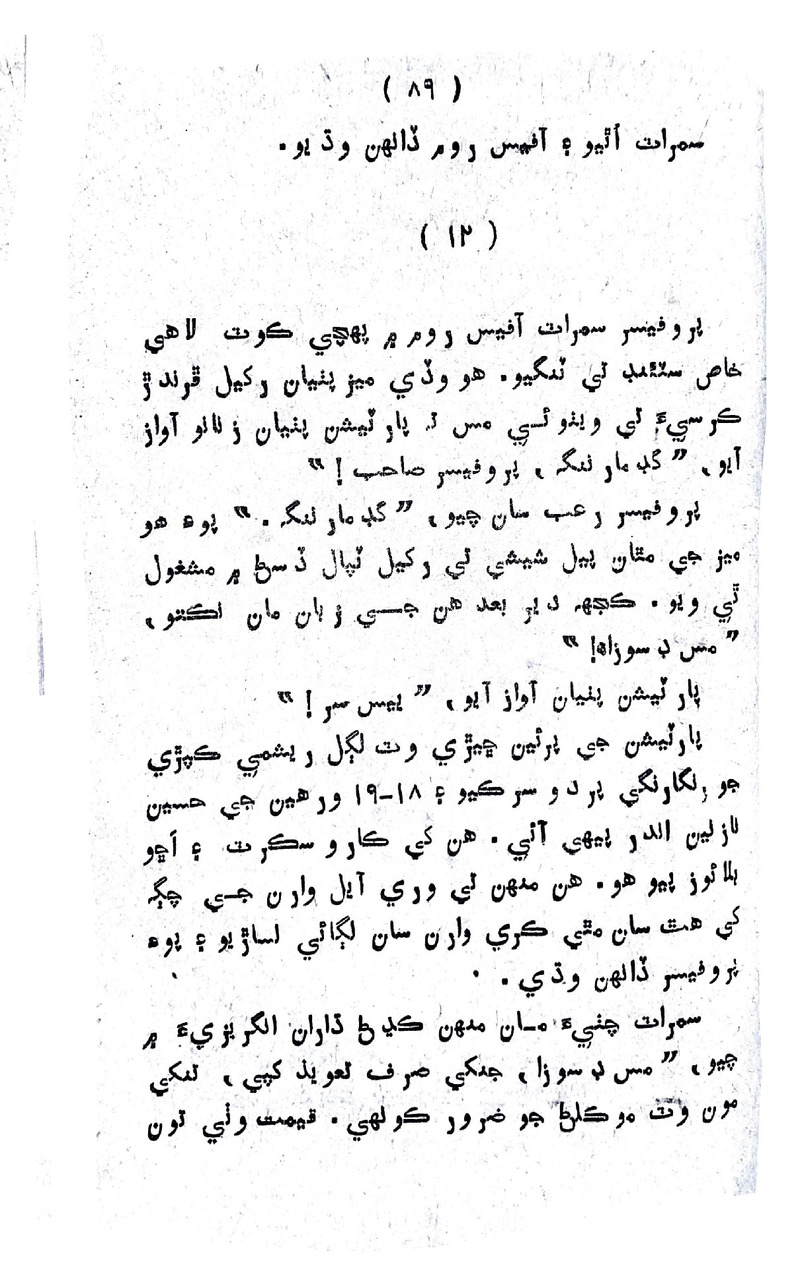 ( ۸۹ )
سمرات اُٿيو ۽ آفيس روم ڏانهن وڌيو.
( ۱۲ )
پروفيسر سمرات آفيس روم ۾ پهچي ڪوٽ لاهي
خاص سٽئنڊ تي ٽنگيو. هو وڏي ميز پٺيان رکيل ڦرندڙ
ڪرسيءَ تي ويٺو ئي مس ته پارٽيشن پٺيان زنانو آواز
آيو، ”گڊ مارننگ، پروفيسر صاحب!“
پروفيسر رعب سان چيو، ”گڊ مارننگ.“ پوءِ هو
ميز جي مٿان پيل شيشي تي رکيل ٽپال ڏسڻ ۾ مشغول
ٿي ويو. ڪجهه دير بعد هن جي زبان مان نڪتو،
”مس ڊسوزاها!“
پارٽيشن پٺيان آواز آيو، ”ييس سر!“
پارٽيشن جي پرئين ڇيڙي وٽ لڳل ريشمي ڪپڙي
جو رنگارنگي پردو سرڪيو ۽ ۱۸-۱۹ ورهين جي حسين
نازنين اندر پيهي آئي. هن کي ڪارو سڪرٽ ۽ اَڇو
بلائوز پيو هو. هن منهن تي وري آيل وارن جي چڳ
کي هٿ سان مٿي ڪري وارن سان لڳائي لساڙيو ۽ پوءِ
پروفيسر ڏانهن وڌي.
سمرات چٺيءَ مان منهن ڪڍڻ ڌاران انگريزيءَ ۾
چيو، ”مس ڊسوزا، جنکي صرف تعويذ کپي، تنکي
مون وٽ موڪلڻ جو ضرور ڪونهي. قيمت وٺي تون